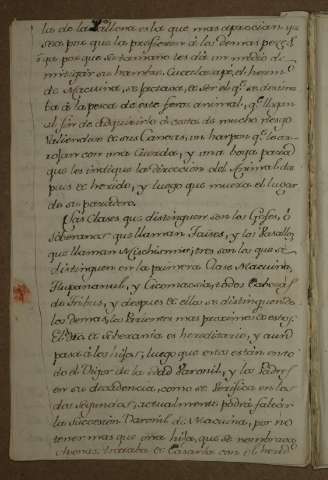 las de la Vallena es la que mas aprecian, ya
sea por que la prefieren á las demas
que por que su tamaño les dá un medio de
mitigar sus hambres. Cucaclasapé, el herm.º
de Macuina, se jactava, de ser el qᵉ se
ta á la pesca de este feroz animal, qᵉ llegan
al fin de adquirirlo á costa de mucho riesgo
valiendose de sus Canoas, un harpon qᵉ le ar-
rojan con una Cuerda, y una boya para
que les indique la direccion del Animal des
pues de herido, y luego que muera el lugar
de su paradero.
Las Clases que distinguen son los Gefes, ó
soberanos que llaman Taises, y los Vasallos
que llaman Mischismis; tres son los que se
distinguen en la primera Clase Macuina,
Tlupananul, y todos Cabezas
de Tribus, y despues de ellos se distinguen
los demas, los Parientes mas proximos de estos.
El de Soberania es hereditario, y
pasa á los hijos, luego que estos estan en to-
do el Vigor de la edad Varonil, y los Padres
en su decadencia, como se verifica en los
dos segundos, actualmente podrá faltar
la succesion Varonil de Macuina, por no
tener mas que una hija, que se nombrava
trataba de Casarla con el hered